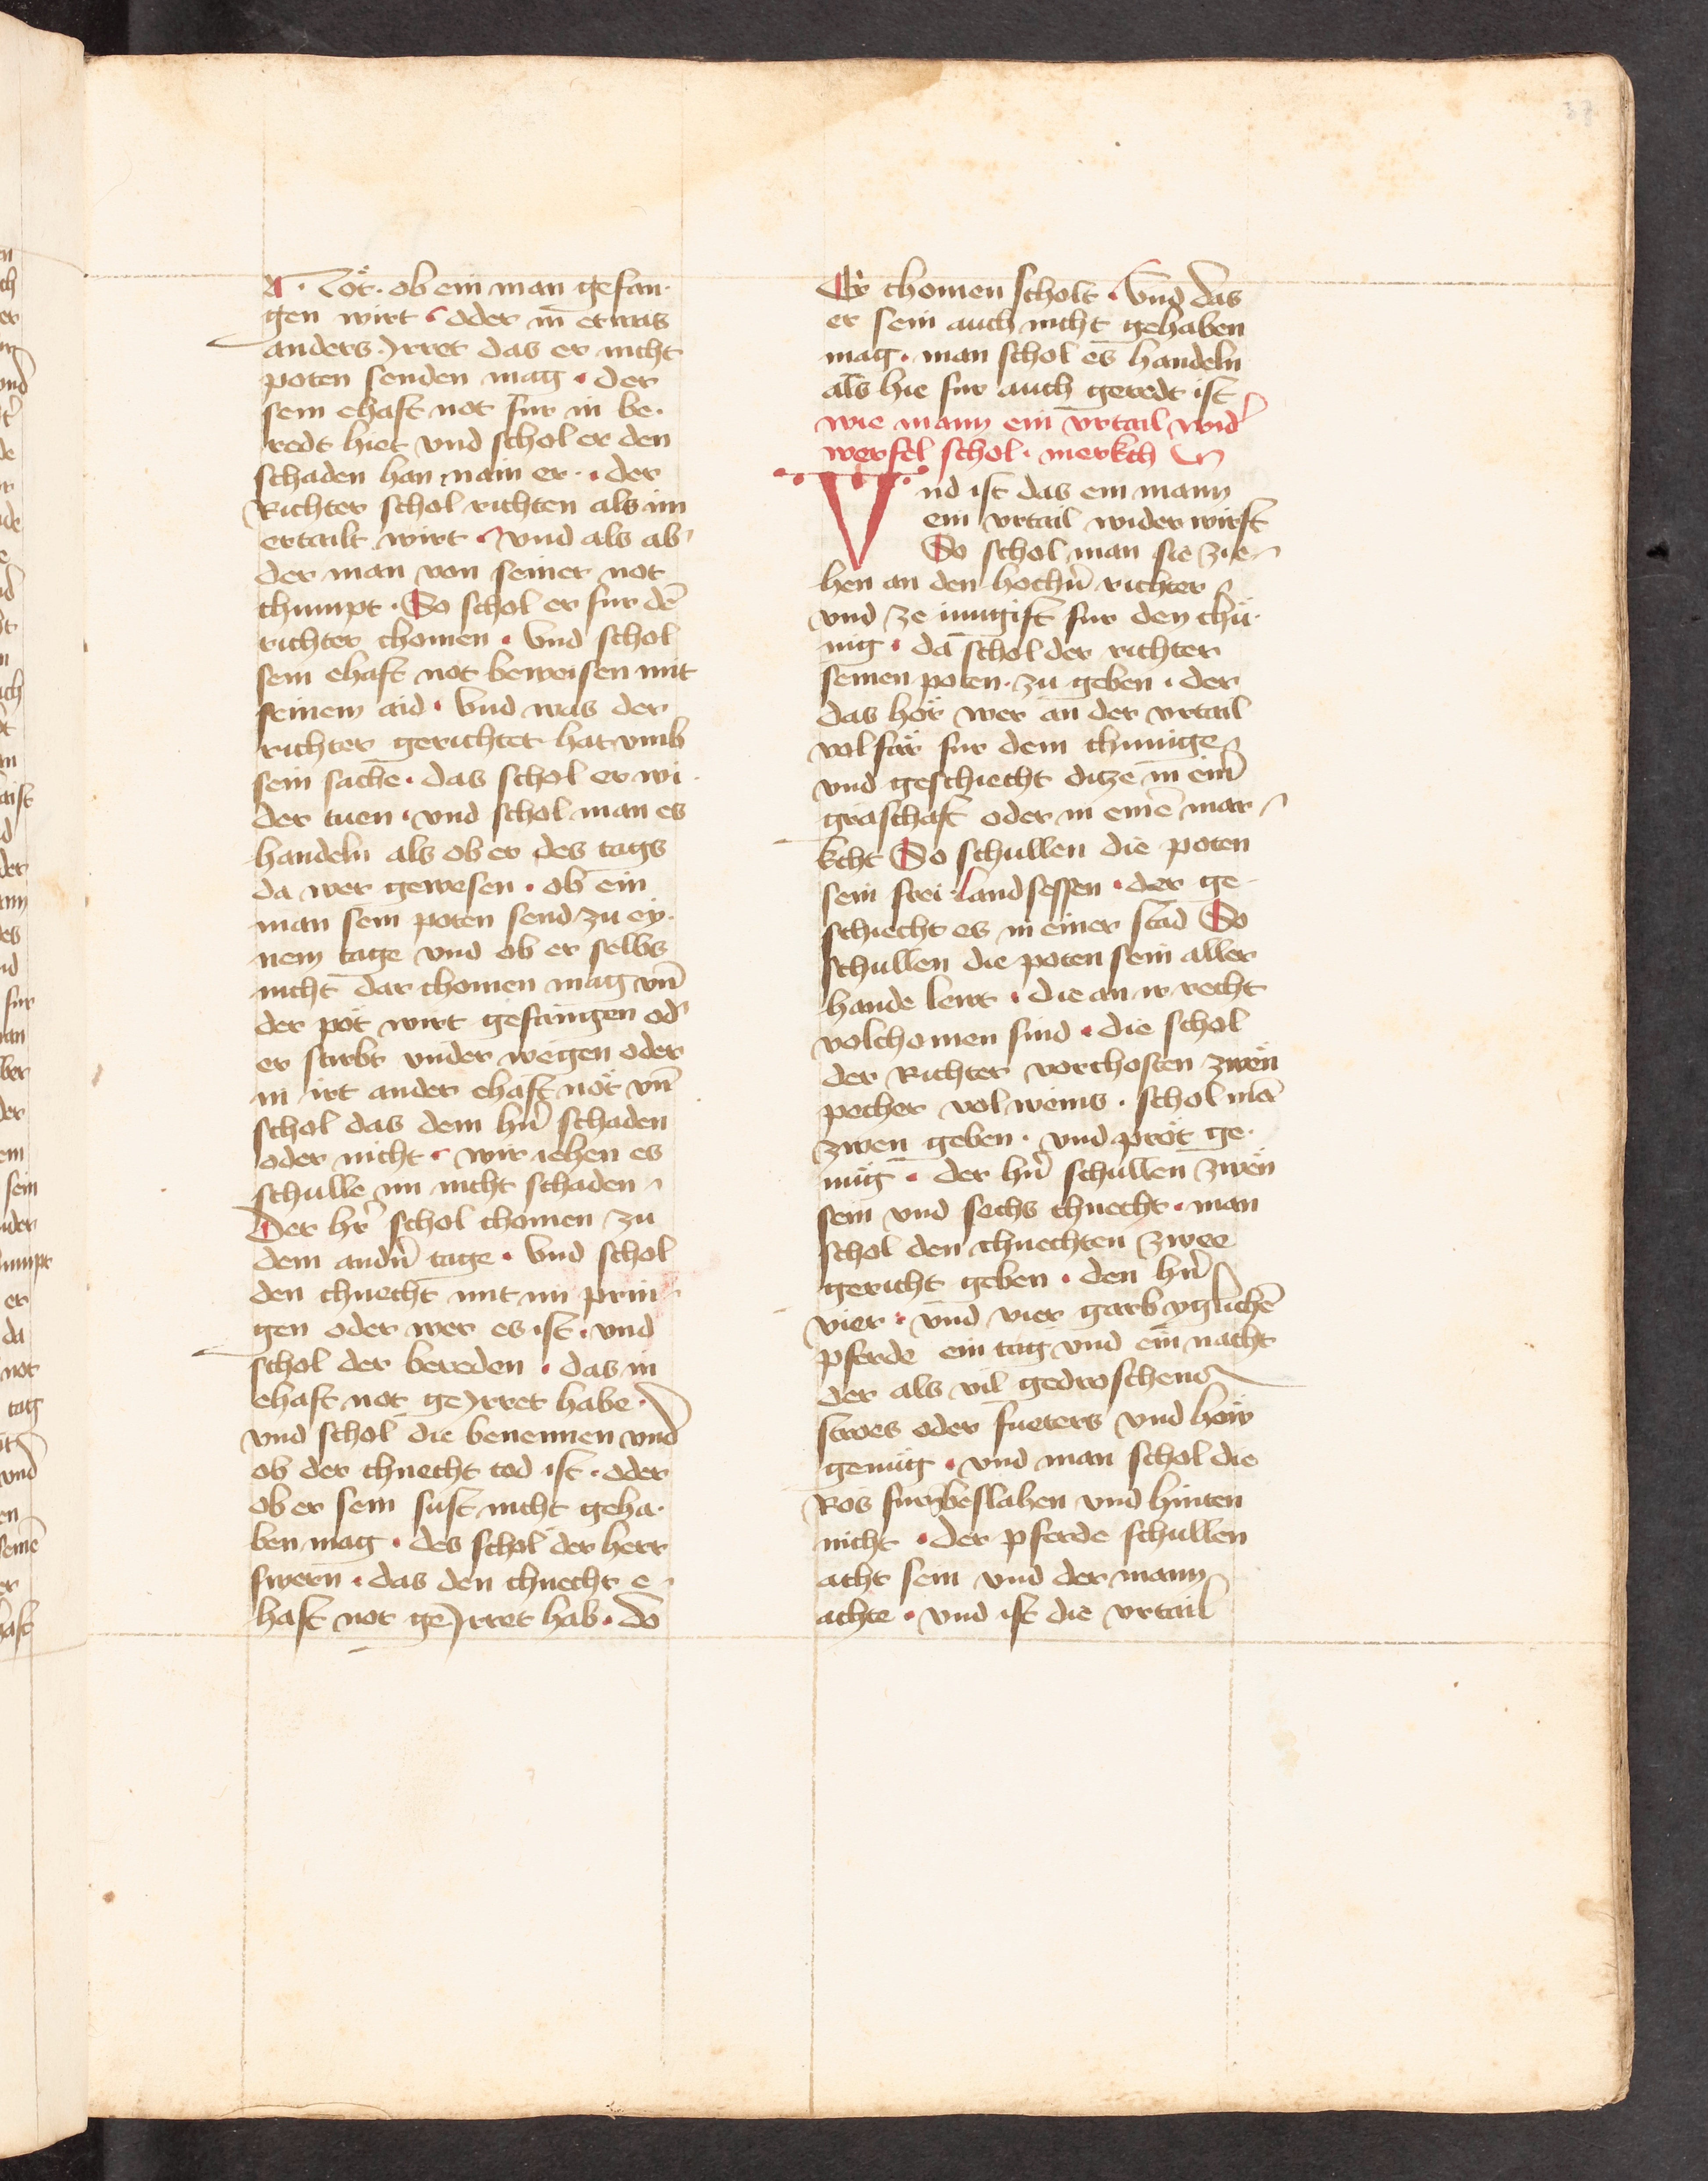 37
A · Tot· ob ein man gefan·
gen wirt · oder in etwas
anders yrret das er nicht
poten senden mag · der
sein ehaft not fur in be·
redt hiet vnd schol er den
schaden han nain er · der
Richter schol richten als im
ertailt wirt · vnd als ab
der man von seiner not
chumpt · So schol er fur dē
richter chomen · vnd schol
sein ehaft not beweisen mit
seinem aid · vnd was der
richter gerichtet hat vmb
sein sache · das schol er wi·
der tuen · vnd schol man es
handeln als ob er des tags
da wer gewesen · ob ein
man sein poten send zu ey·
nem tage vnd ob er selbs
nicht dar chomen mag vn̄
der pot wirt gefangen od'
er starbt vnder wegen oder
in irt ander ehaft not vn̄
schol das dem hr̄n schaden
oder nicht · wir iehen es
schulle im nicht schaden
Der hr̄ schol chomen zu
dem andn̄ tage · vnd schol
den chnecht mit im prin
gen oder wer es ist · vnd
schol der bereden · das in
ehaft not geyrret habe ·
vnd schol die benennen vnd
ob der chnecht tod ist · oder
ob er sein sust nicht geha·
ben mag · des schol der herr
swern · das den chnecht e
haft not geyrret hab · do
Er chomen scholt · vnd das
er sein auch nicht gehaben
mag · man schol es handeln
als hie fur auch geredt ist
wie mann ein vrtail wid'
werfel schol · merkch
Vnd ist das ein mann
ein vrtail wider wirft
So schol man sie zie
hen an den hochn̄ richter
vnd ze iungist fur den chu·
nig · da schol der richter
seinen poten · zu geben · der
das hör wer an der vrtail
vol far fur dem chunige
vnd geschiecht ditze in ein̄
graschaft oder in einē mar
kcht So schullen die poten
sein frei landsessen · der ge
schiecht es in einer stad So
schullen die poten sein aller
hande lewt · die an ir recht
volchomen sind · die schol
der Richter vorchosten zwen
pecher vol weins · schol mā
zwen geben · vnd prot ge·
nug · der hr̄n schullen zwen
sein vnd sechs chnecht · man
schol den chnechten zwee
gericht geben · den hr̄n
vier · vnd vier garb yglichē
pferde ein tag vnd ein nacht
der als vil gedroschens
stroes oder fueters vnd hoiw
genug · vnd man schol die
Ros furn beslahen vnd hinten
nicht · der pferde schullen
acht sein vnd der mann
achte · vnd ist die vrtail